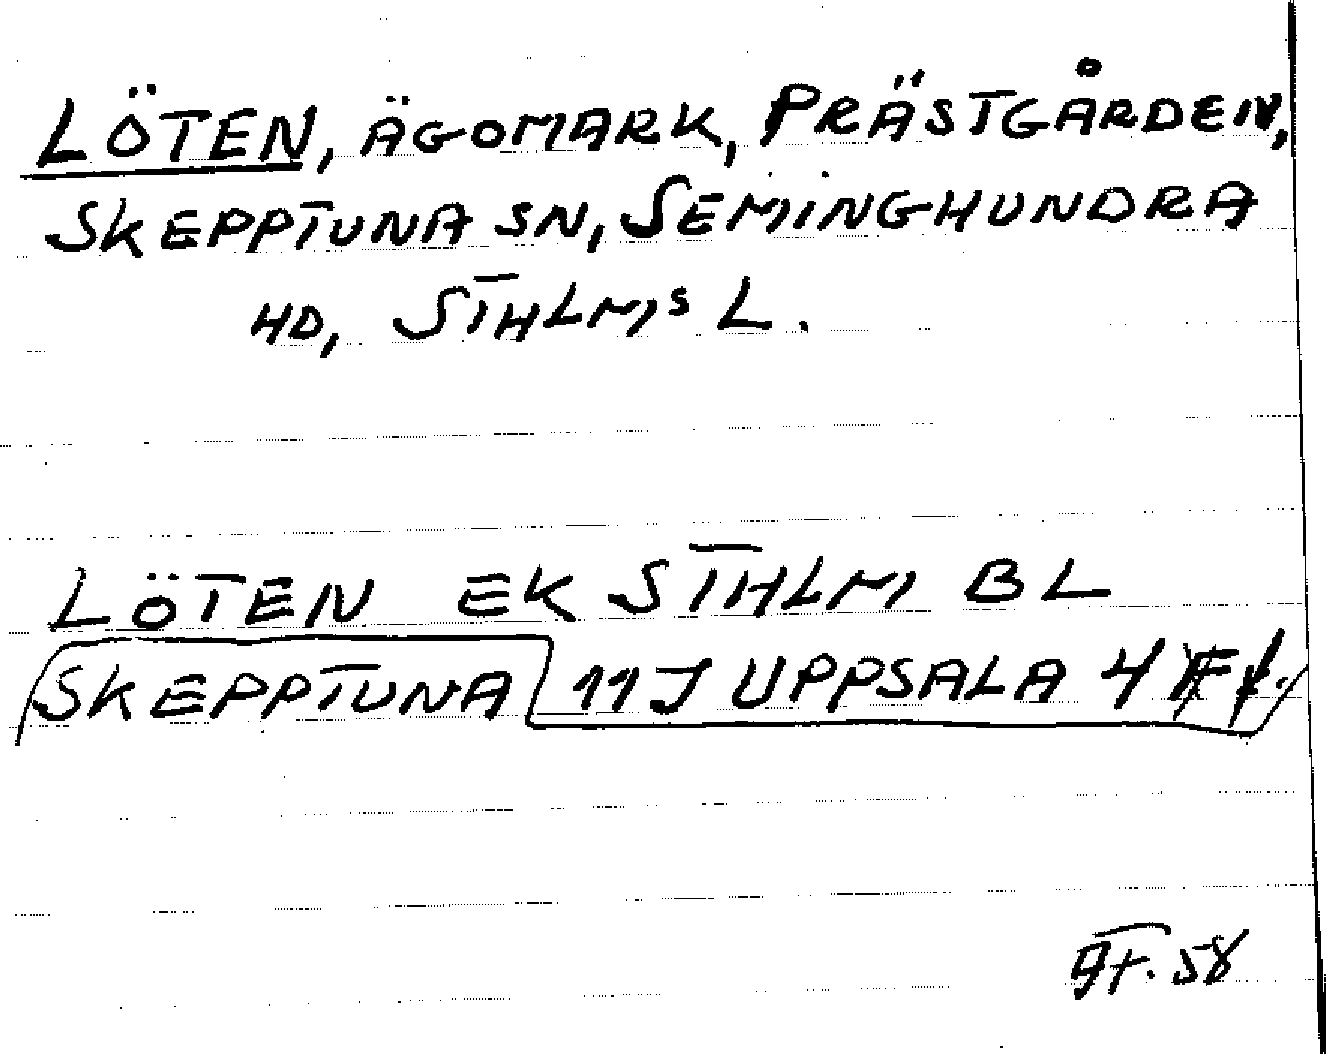 LÖTEN, ÄGOMARK, PRÄSTGÅRDEN,
SKEPPTUNA SN, SEMINGHUNDRA
HD, STHLMS L.
LÖTEN EK STHLM BL
SKEPPTUNA 11J UPPSALA 4
58